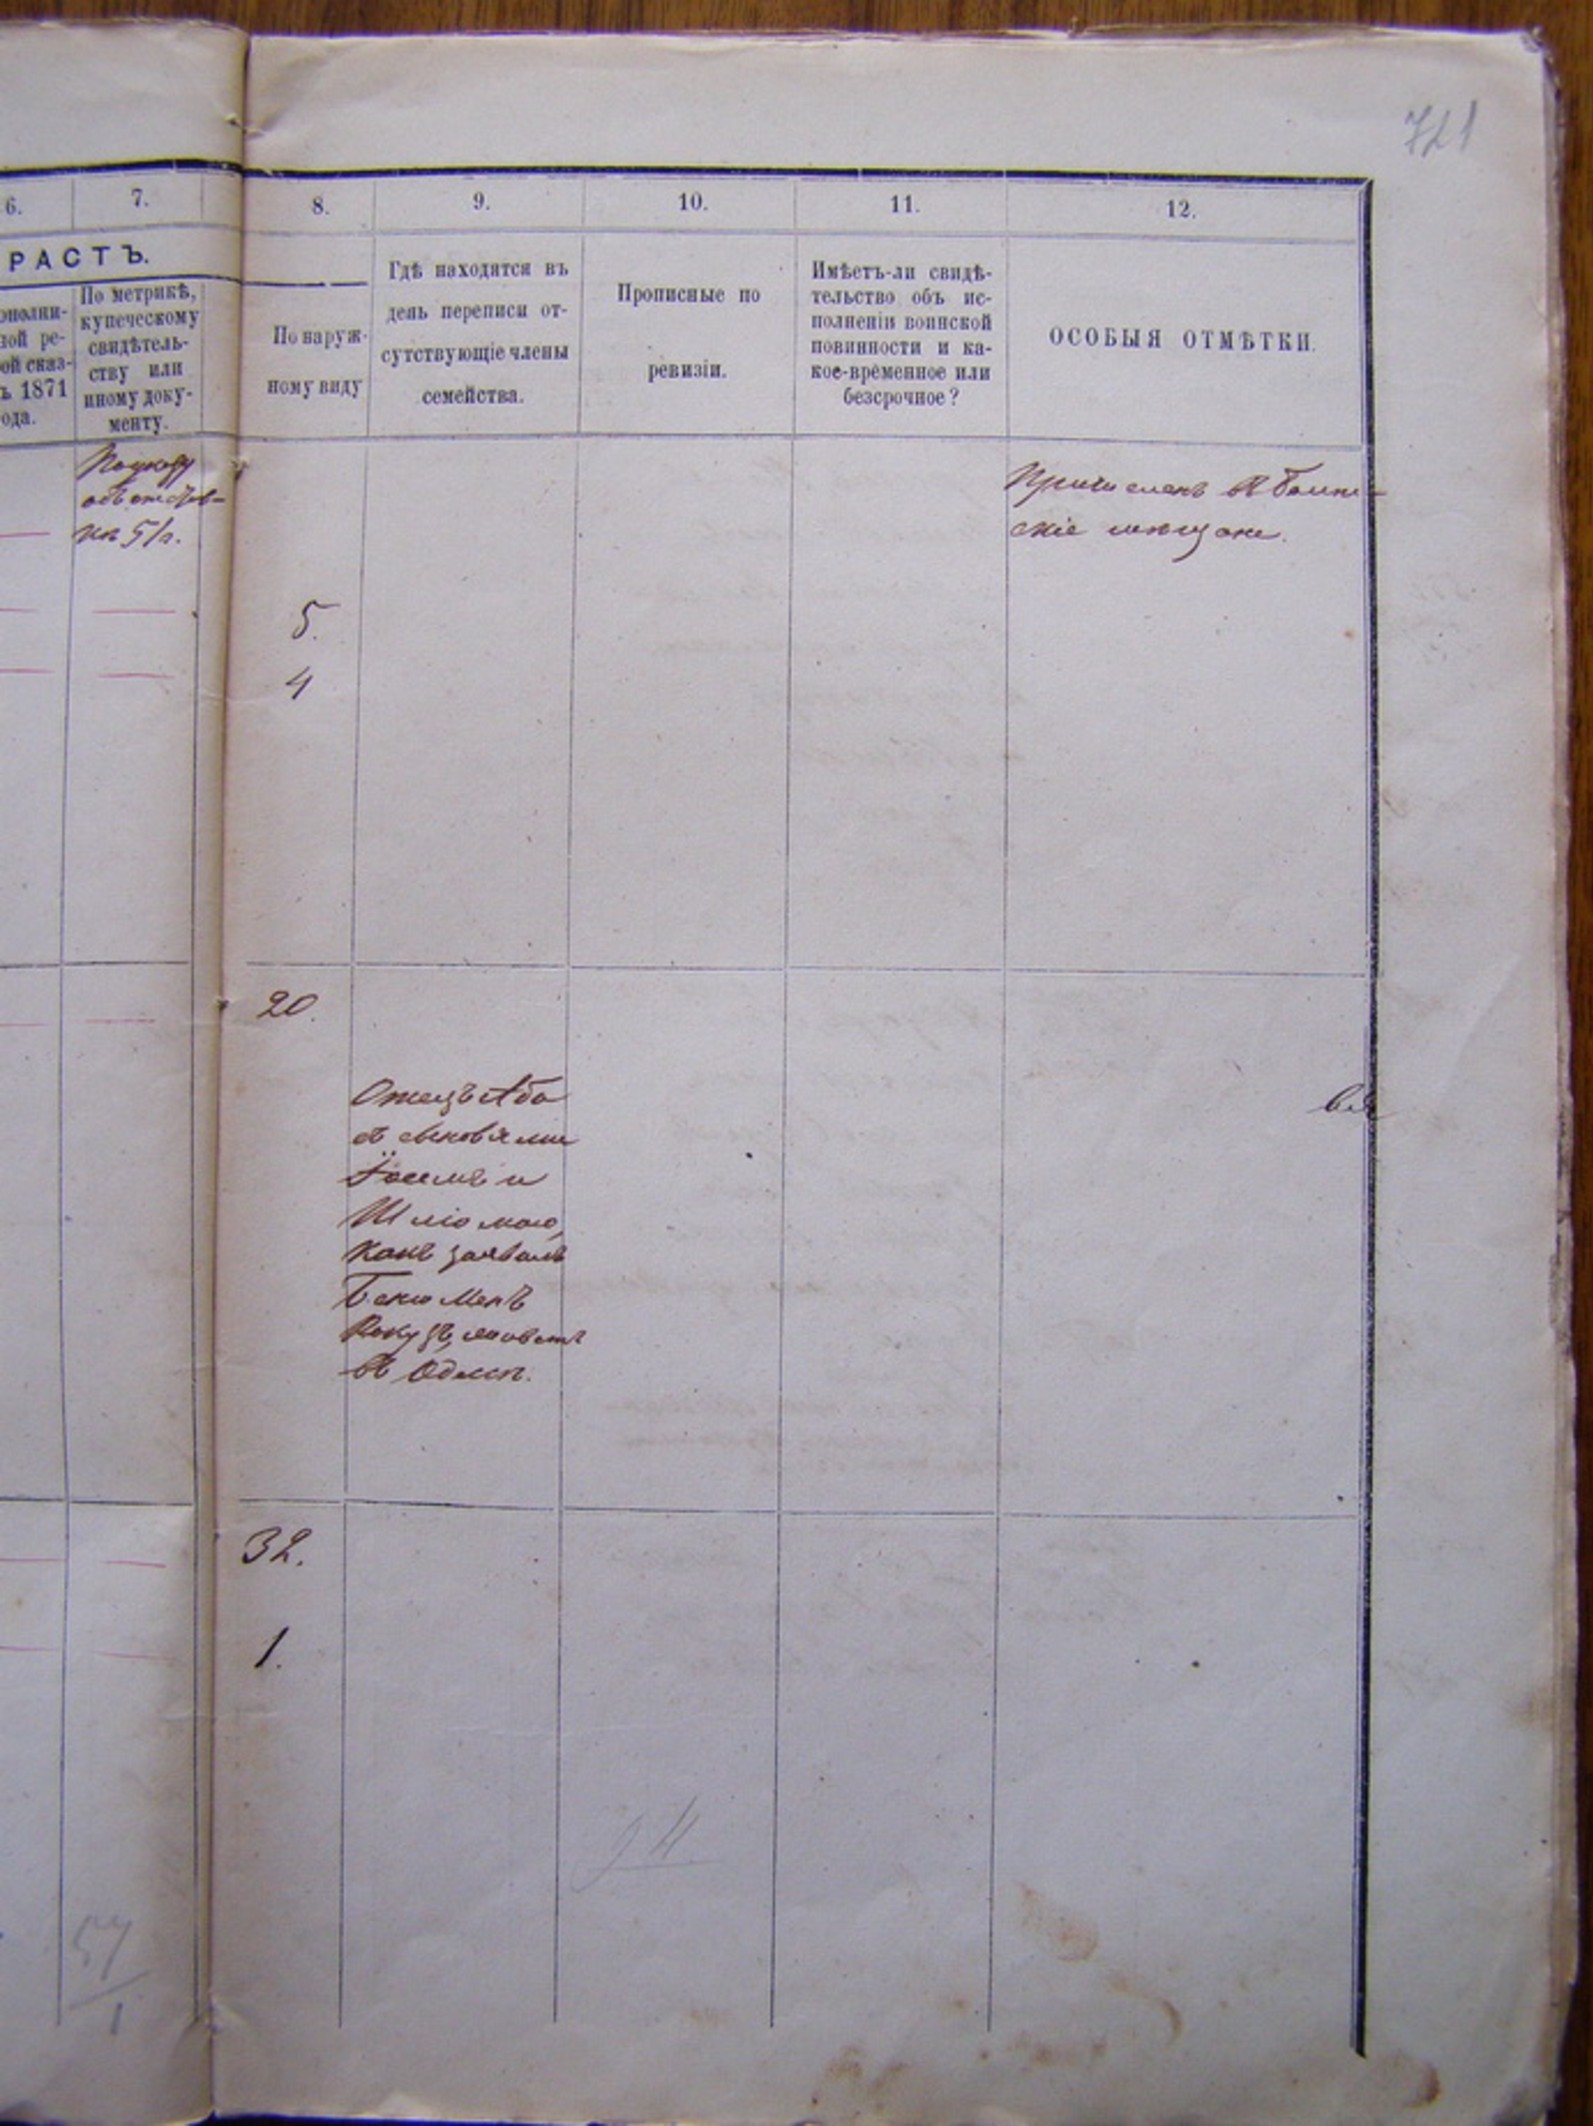 721
6.
7.
8.
9.
10.
11.
12.
РАСТЪ.
ополни-
ой ре-
ой сказ-
ъ 1871
ода.
По метрикѣ,
купеческому
свидѣтель-
ству или
иному доку-
менту.
По наруж-
ному виду
Гдѣ находятся въ
день переписи от-
сутствующіе члены
семейства.
Прописные по
ревизіи.
Имѣетъ-ли свидѣ-
тельство объ ис-
полненіи воинской
повинности и ка-
кое-временное или
безсрочное?
ОСОБЫЯ ОТМѢТКИ.
По указу
объ отстав-
кѣ 51 г.
Причисленъ въ
скіе мѣщане.
5.
4
20.
Отецъ Аба
съ сыновьями
и
Шліомою,
какъ заявилъ
въ Одессѣ.
32.
1.
57
1